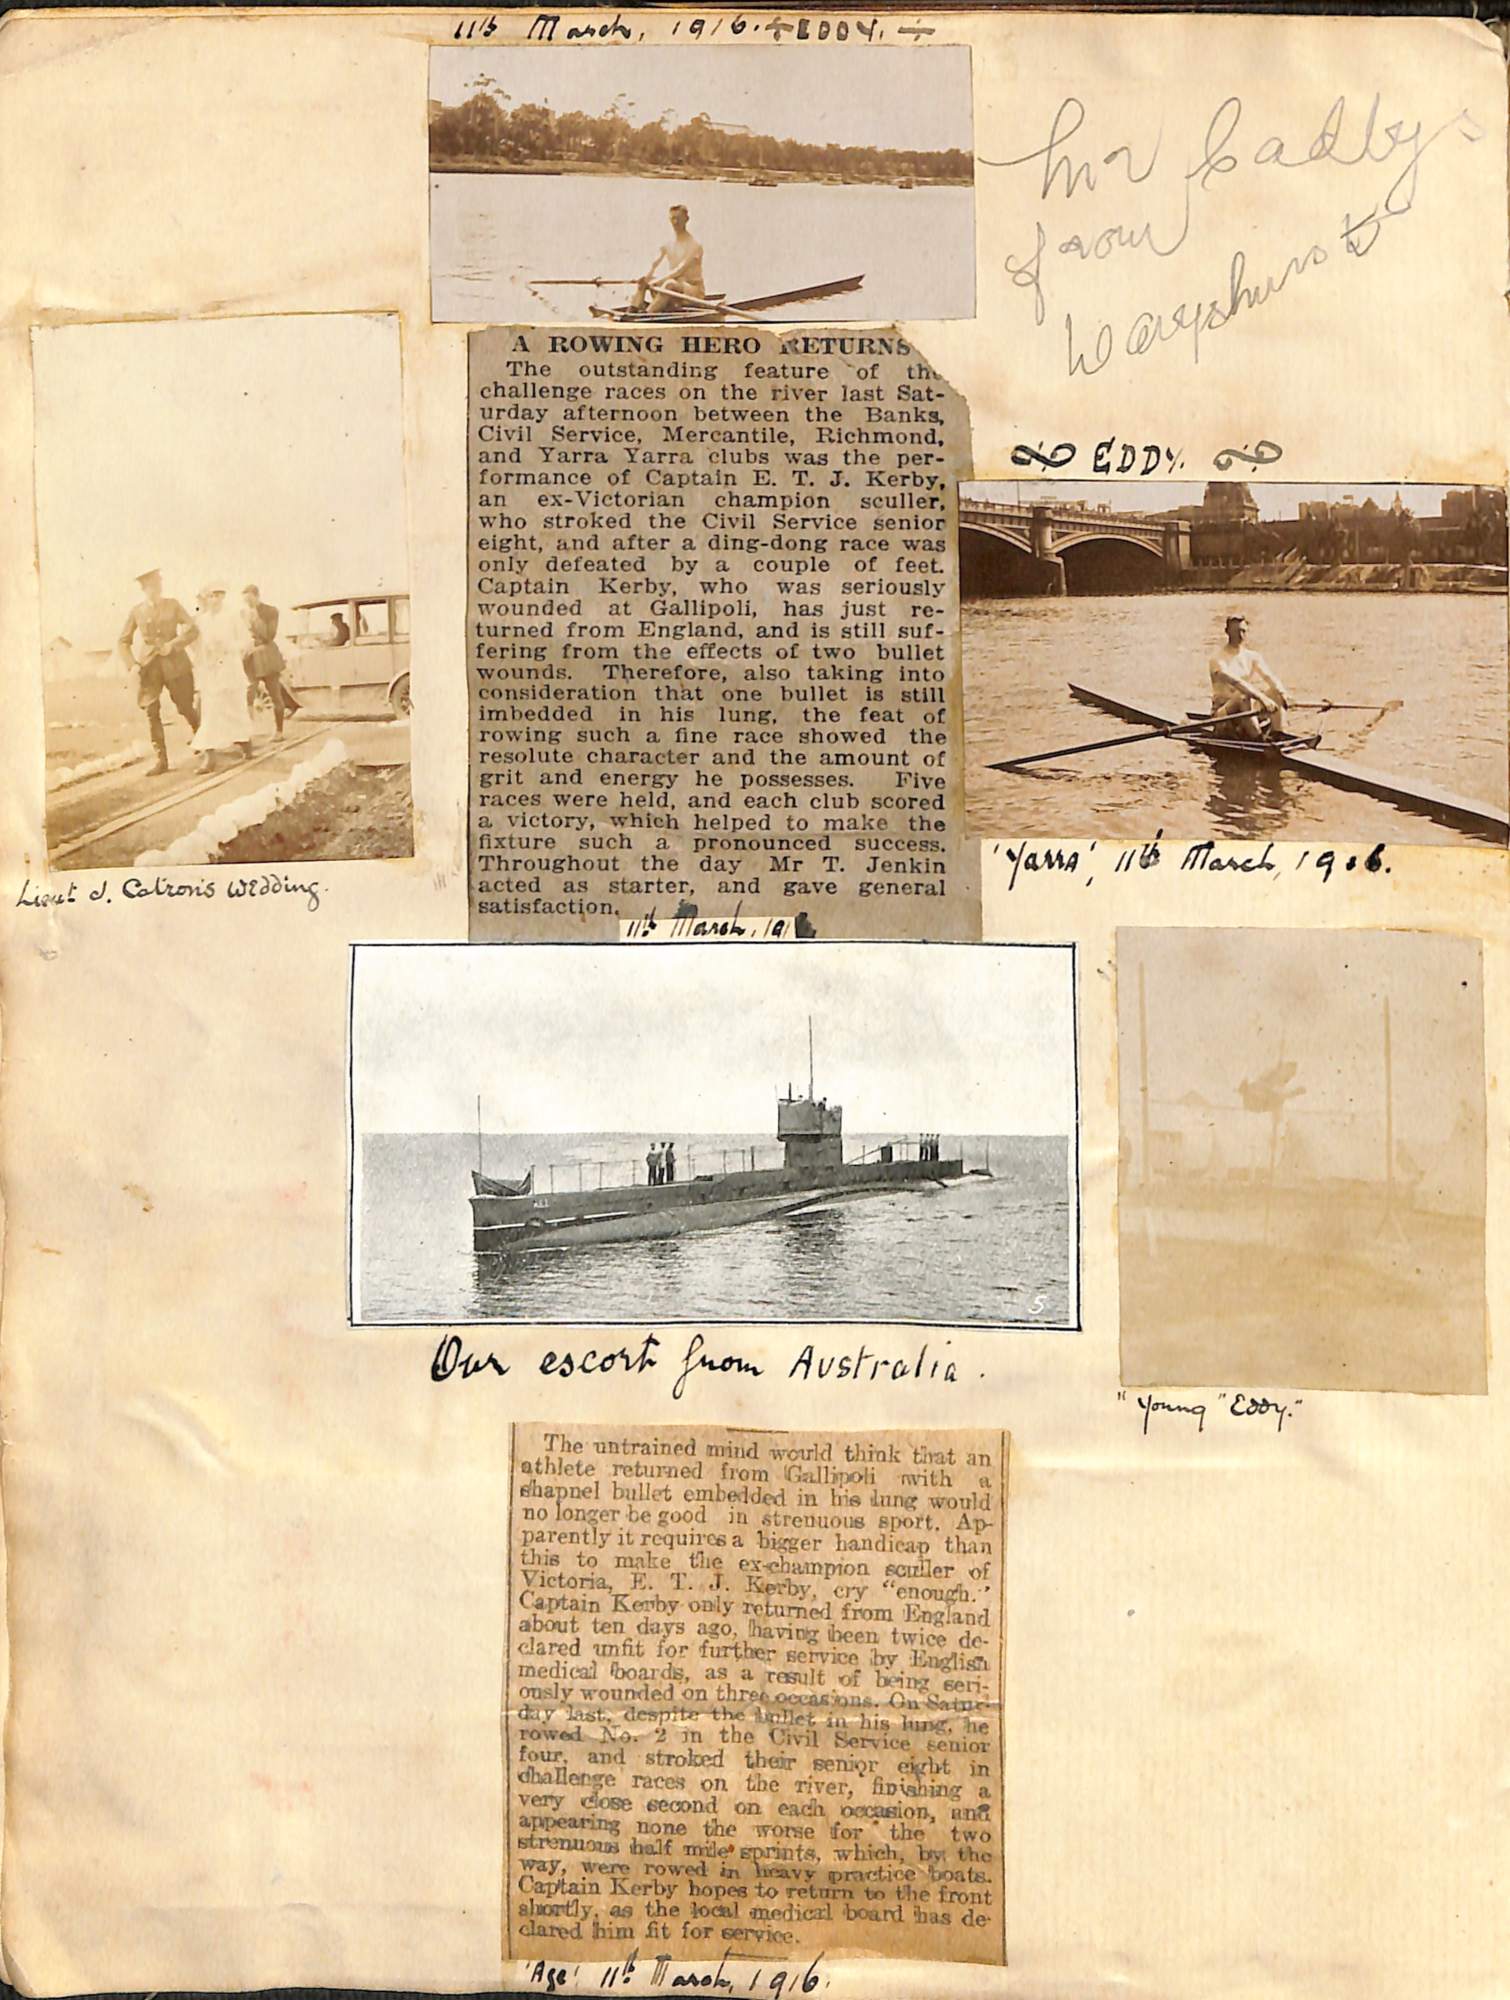 11th March, 1916. EDDY.
Mr Cadbys
from
A ROWING HERO RETURNS
The outstanding feature of the
challenge races on the river last Sat-
urday afternoon between the Banks,
Civil Service, Mercantile, Richmond,
and Yarra Yarra clubs was the per-
formance of Captain E. T. J. Kerby,
an ex-Victorian champion sculler,
who stroked the Civil Service senior
eight, and after a ding-dong race was
only defeated by a couple of feet.
Captain Kerby, who was seriously
wounded at Gallipoli, has just re-
turned from England, and is still suf-
fering from the effects of two bullet
wounds. Therefore, also taking into
consideration that one bullet is still
imbedded in his lung, the feat of
rowing such a fine race showed the
resolute character and the amount of
grit and energy he possesses. Five
races were held, and each club scored
a victory, which helped to make the
fixture such a pronounced success.
Throughout the day Mr T. Jenkin
acted as starter, and gave general
satisfaction.
11th March, 191
EDDY.
'Yarra', 11th March, 1916.
Lieut J. Catron's Wedding.
5
Our escort from Australia.
"Young" Eddy."
The untrained mind would think that an
athlete returned from Gallipoli with a
shapnel bullet embedded in his lung would
no longer be good in strenuous sport. Ap-
parently it requires a bigger handicap than
this to make the ex-champion sculler of
Victoria, E. T. J. Kerby, cry "enough."
Captain Kerby only returned from England
about ten days ago, having been twice de-
clared unfit for further service by English
medical boards, as a result of being seri-
ously wounded on three occasions. On Satur-
day last, despite the bullet in his lung, he
rowed No. 2 in the Civil Service senior
four, and stroked their senior eight in
challenge races on the river, finishing a
very close second on each occasion, and
appearing none the worse for the two
strenuous half mile sprints, which, by the
way, were rowed in heavy practice boats.
Captain Kerby hopes to return to the front
shortly, as the local medical board has de-
clared him fit for service.
'Age', 11th March, 1916.